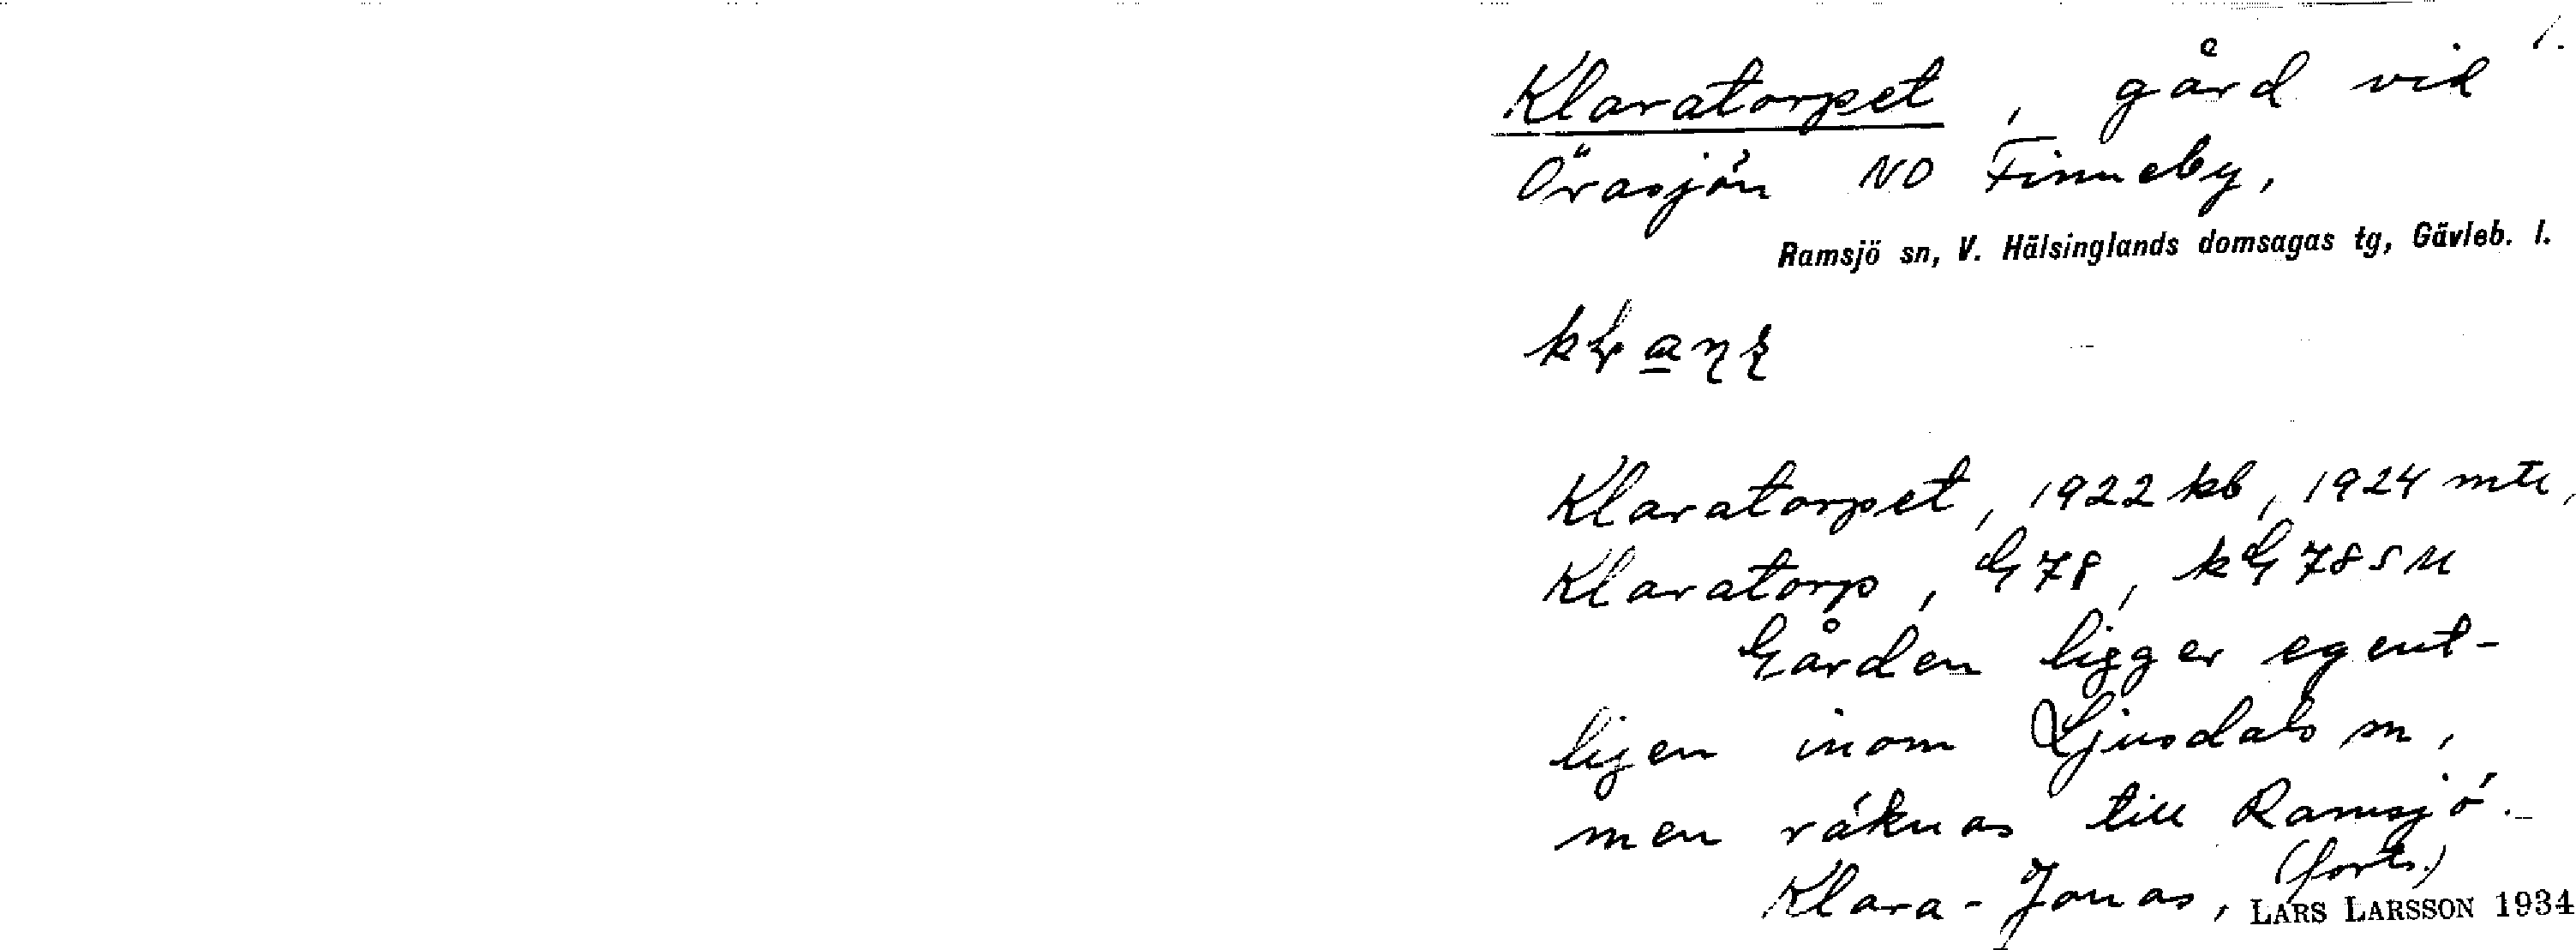 1.
Klaratorpet, gård vid
Örasjön NO Finneby,
Ramsjö sn, V. Hälsinglands domsagas tg, Gävleb. l.
Klaratorpet, 1922 kb, 1924 mtl,
Klaratorp, G 78, kG 78 SM
Gården ligger egent-
ligen inom Ljusdals sn,
men räknas till Ramsjö.
(forts.)
Klara-Jonas, LARS LARSSON 1934